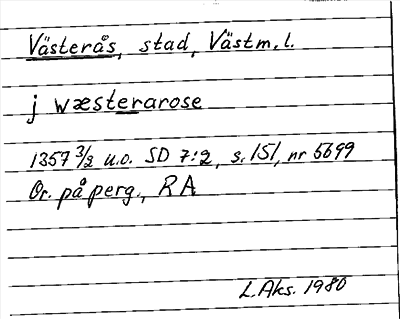 Västerås, stad, Västm. l.
j wæsterarose
1357 3/2 u.o. SD 7:2, s. 151, nr 5699
Or. på perg., RA
L. Aks. 1980